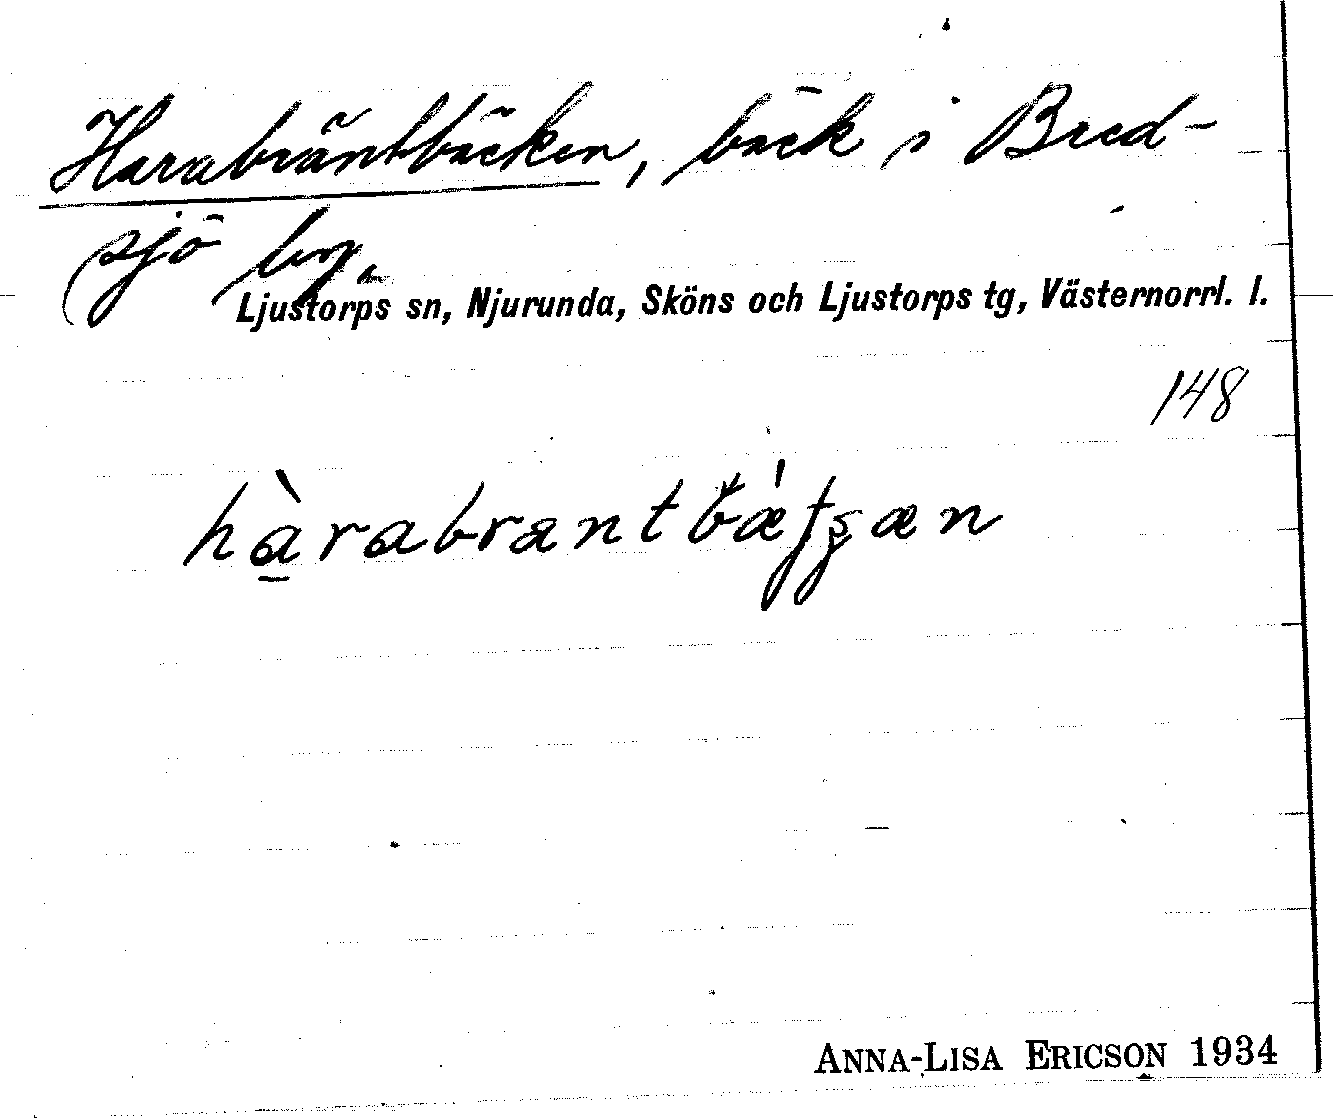 Harabräntbäcken, bäck i Bred-
sjö by.
Ljustorps sn, Njurunda, Sköns och Ljustorps tg, Västernorrl. l.
148
hàrabrantbæ̀tʂæn
ANNA-LISA ERICSON 1934